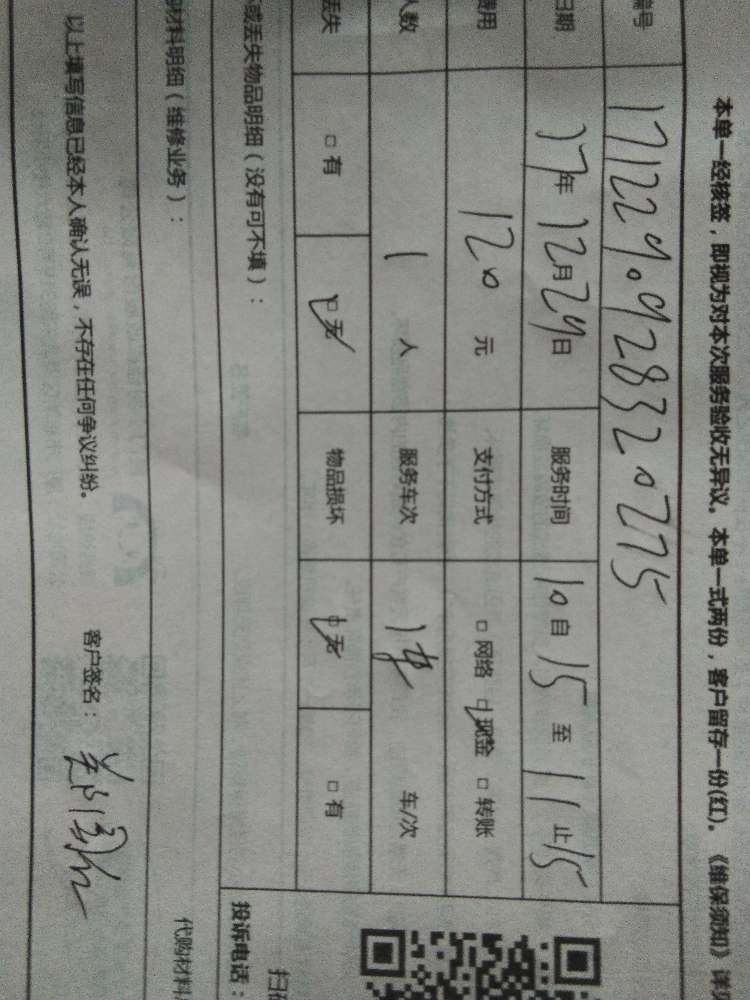 本单一经核签，即视为对本次服务验收无异议。本单一式两份，客户留存一份(红)。《维保须知》详见
编号 171229.092832.0775
日期 17年12月29日 服务时间 10自15至11止15
费用 120元 支付方式 □网络 □现金 □转账
人数 1人 服务车次 1 车/次
丢失 □有 □无 物品损坏 □无 □有
或丢失物品明细（没有可不填）：
投诉电话：
材料明细（维修业务）：
代购材料
以上填写信息已经本人确认无误，不存在任何争议纠纷。
客户签名：